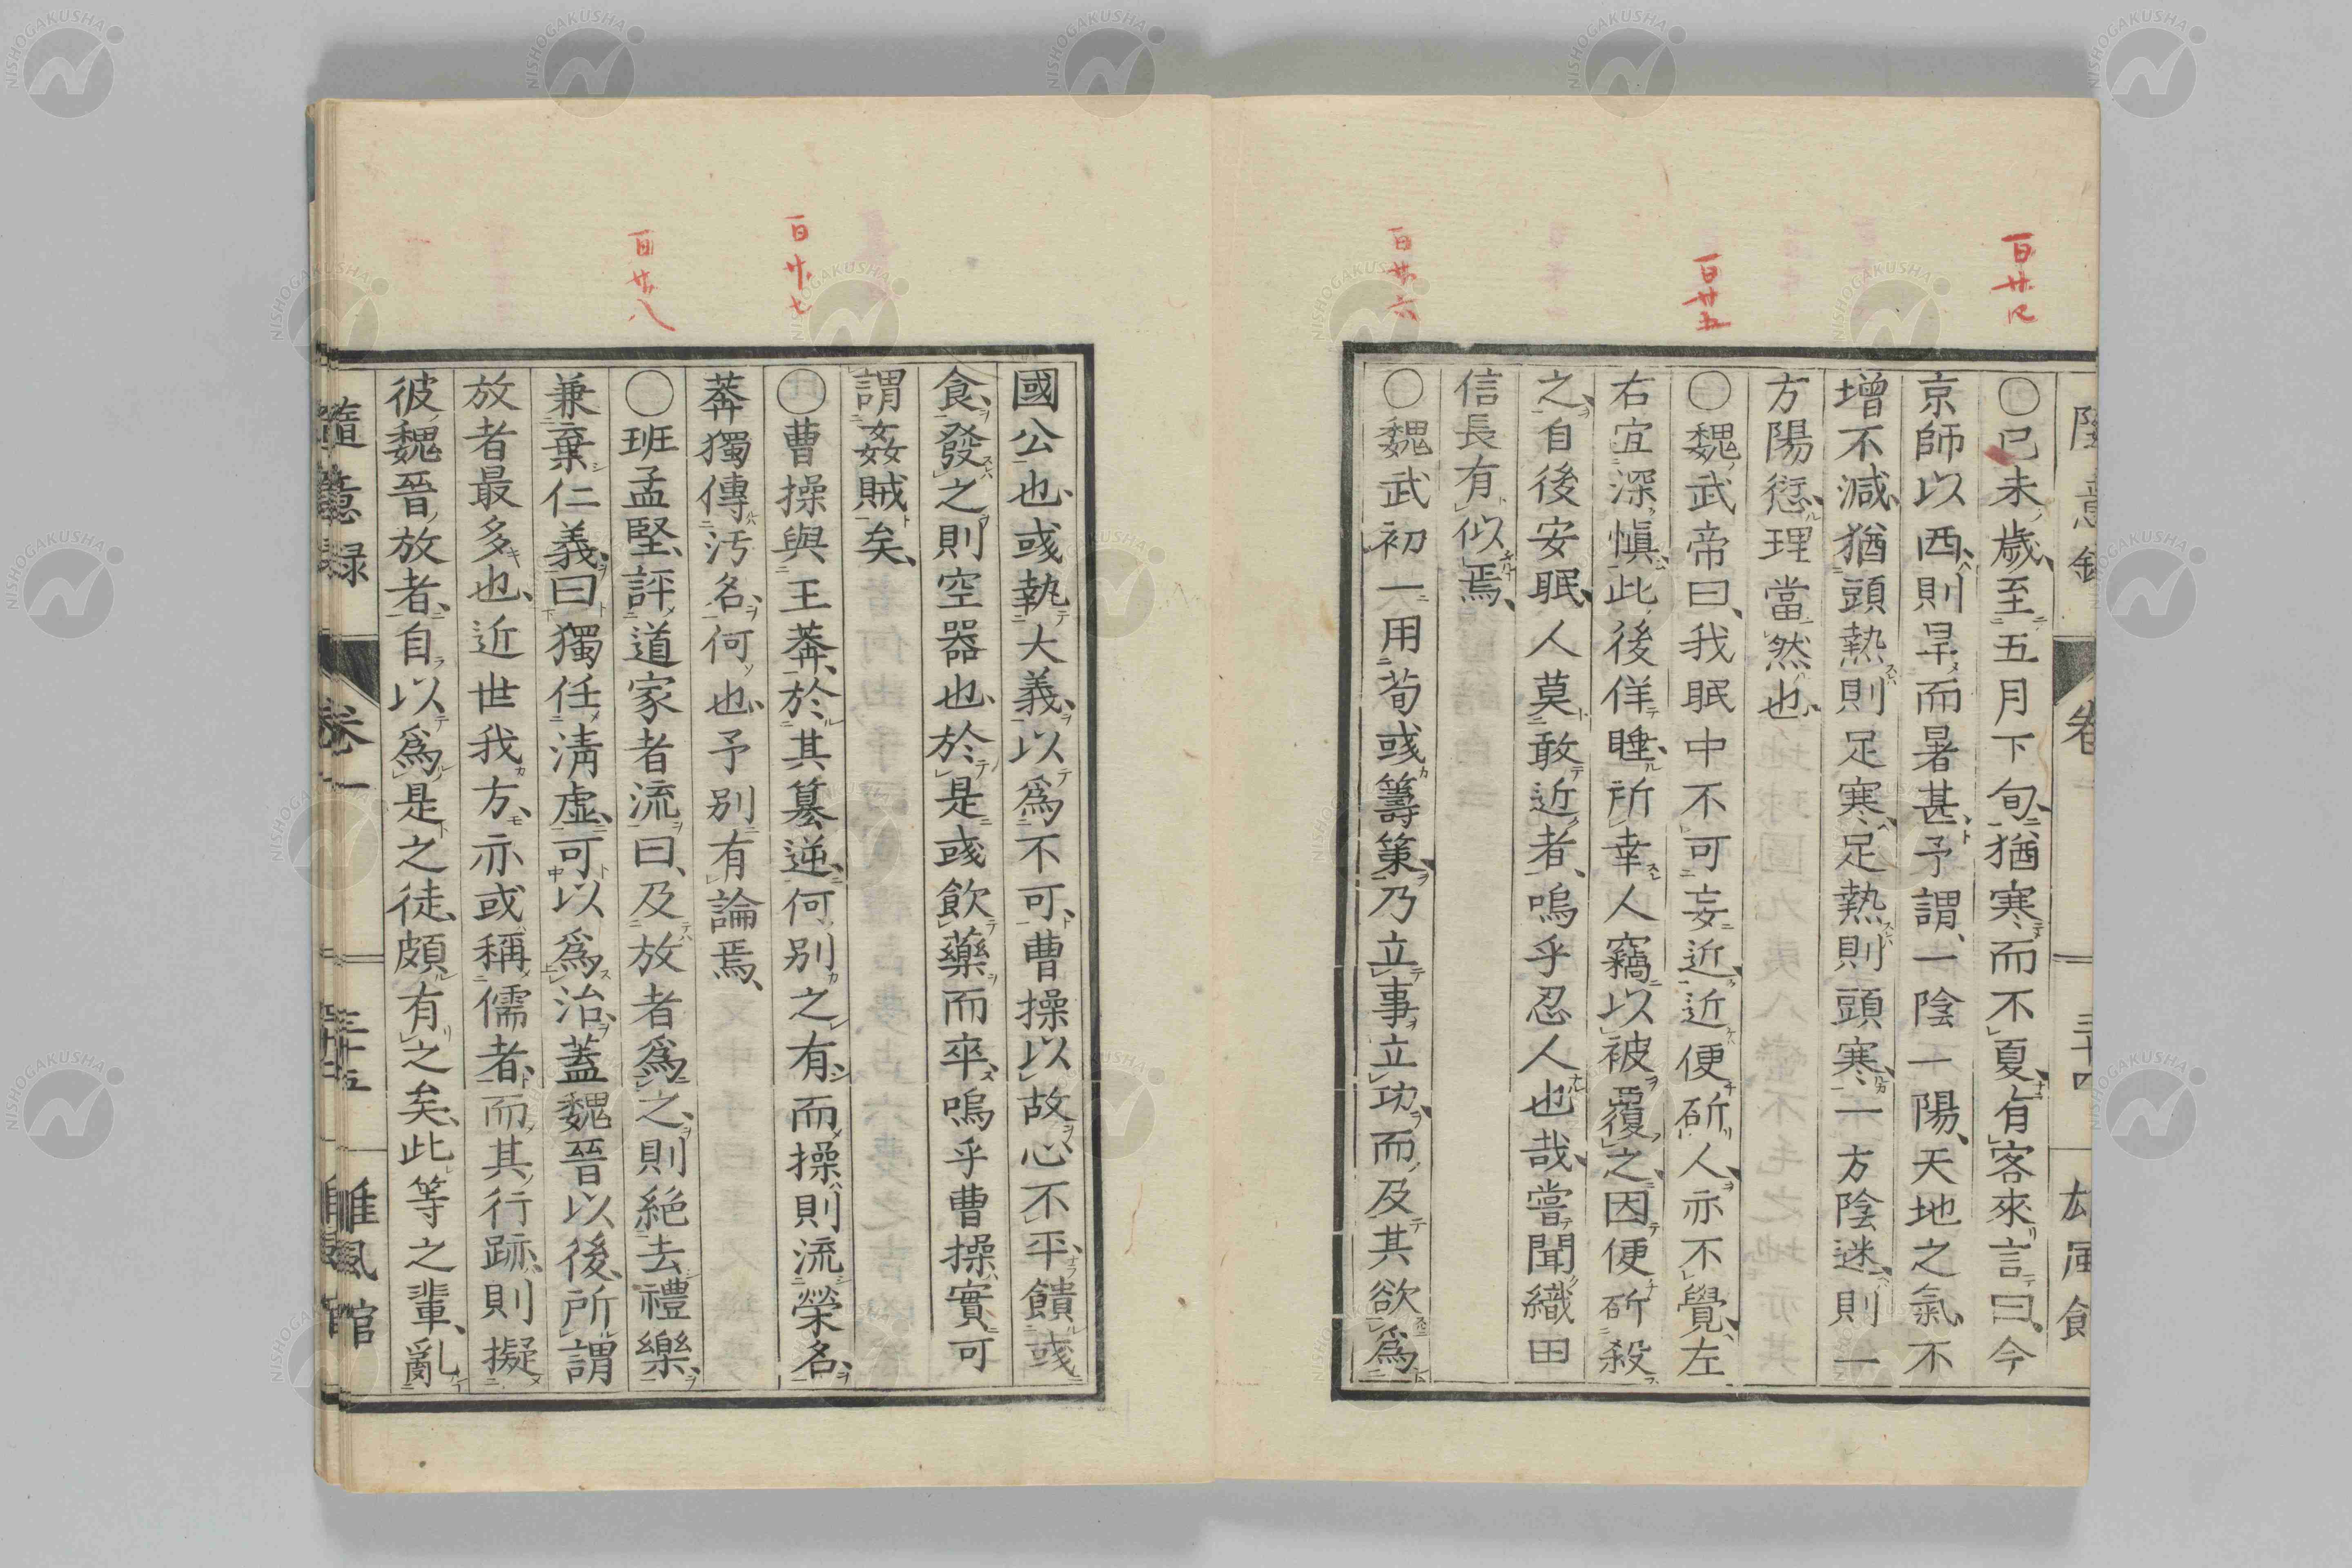 百廿四
百廿五
百廿六
隨意録 卷一 三十四 雄風館
○己未歲至五月下旬猶寒而不夏有客來言曰今
京師以西則旱而暑甚予謂一陰一陽天地之氣不
增不減猶頭熱則足寒足熱則頭寒一方陰迷則一
方陽愆理當然也
○魏武帝曰我眠中不可妄近近便斫人亦不覺左
右宜深愼此後佯睡所幸人竊以被覆之因便斫殺
之自後安眠人莫敢近者嗚乎忍人也哉嘗聞織田
信長有似焉
○魏武初一用荀彧籌策乃立事立功而及其欲爲
百廿七
百廿八
國公也彧執大義以爲不可曹操以故心不平饋彧
食發之則空器也於是彧飲藥而卒嗚乎曹操實可
謂姦賊矣
○曹操與王莽於其簒逆何別之有而操則流榮名
莽獨傳汚名何也予別有論焉
○班孟堅評道家者流曰及放者爲之則絶去禮樂
兼棄仁義曰獨任淸虛可以爲治蓋魏晉以後所謂
放者最多也近世我方亦或稱儒者而其行跡則擬
彼魏晉放者自以爲是之徒頗有之矣此等之輩亂
隨意録 卷一 三十五 雄風館
NISHOGAKUSHA